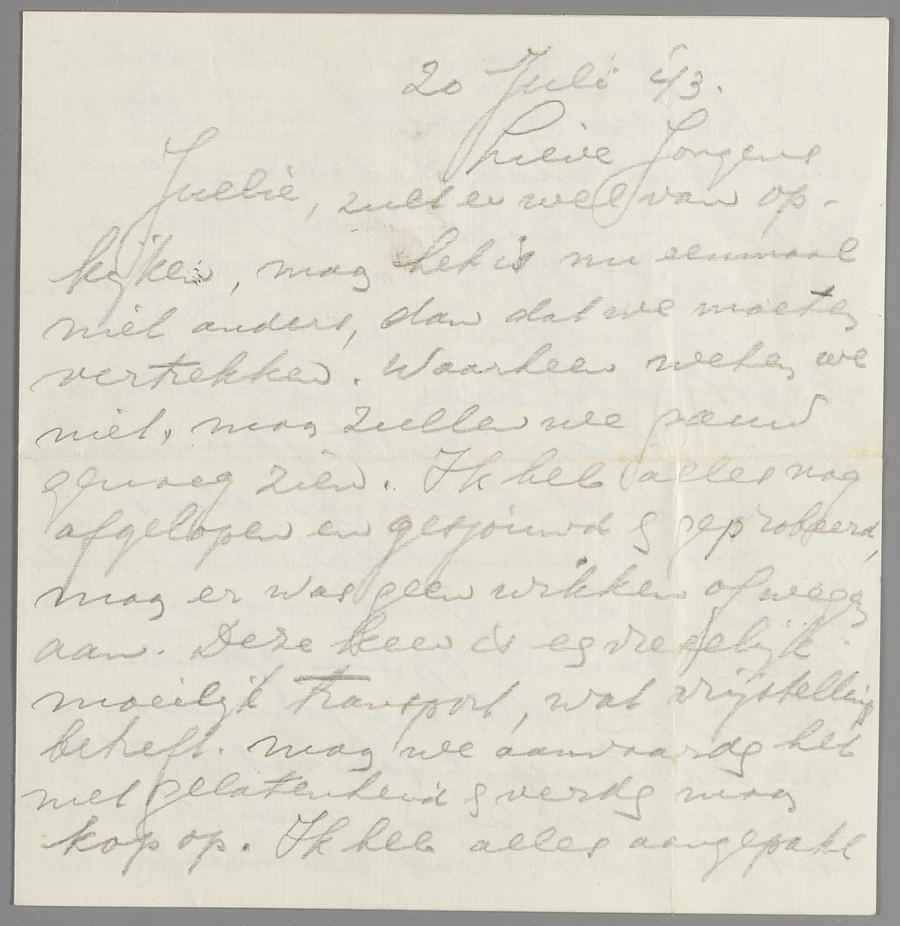 20 Juli '43.
Lieve Jongens
Jullie, zult er wel van op-
kijken, maar het is nu eenmaal
niet anders, dan dat we moeten
vertrekken. Waarheen weten we
niet, maar zullen we gauw
genoeg zien. Ik heb alles nog
afgelopen en gesjouwd & geprobeerd,
maar er was geen wikken of wegen
aan. Deze keer is
moeilijk transport, wat vrijstelling
betreft. maar we aanvaarden het
met gelatenheid & verder maar
kop op. Ik heb alles aangepakt